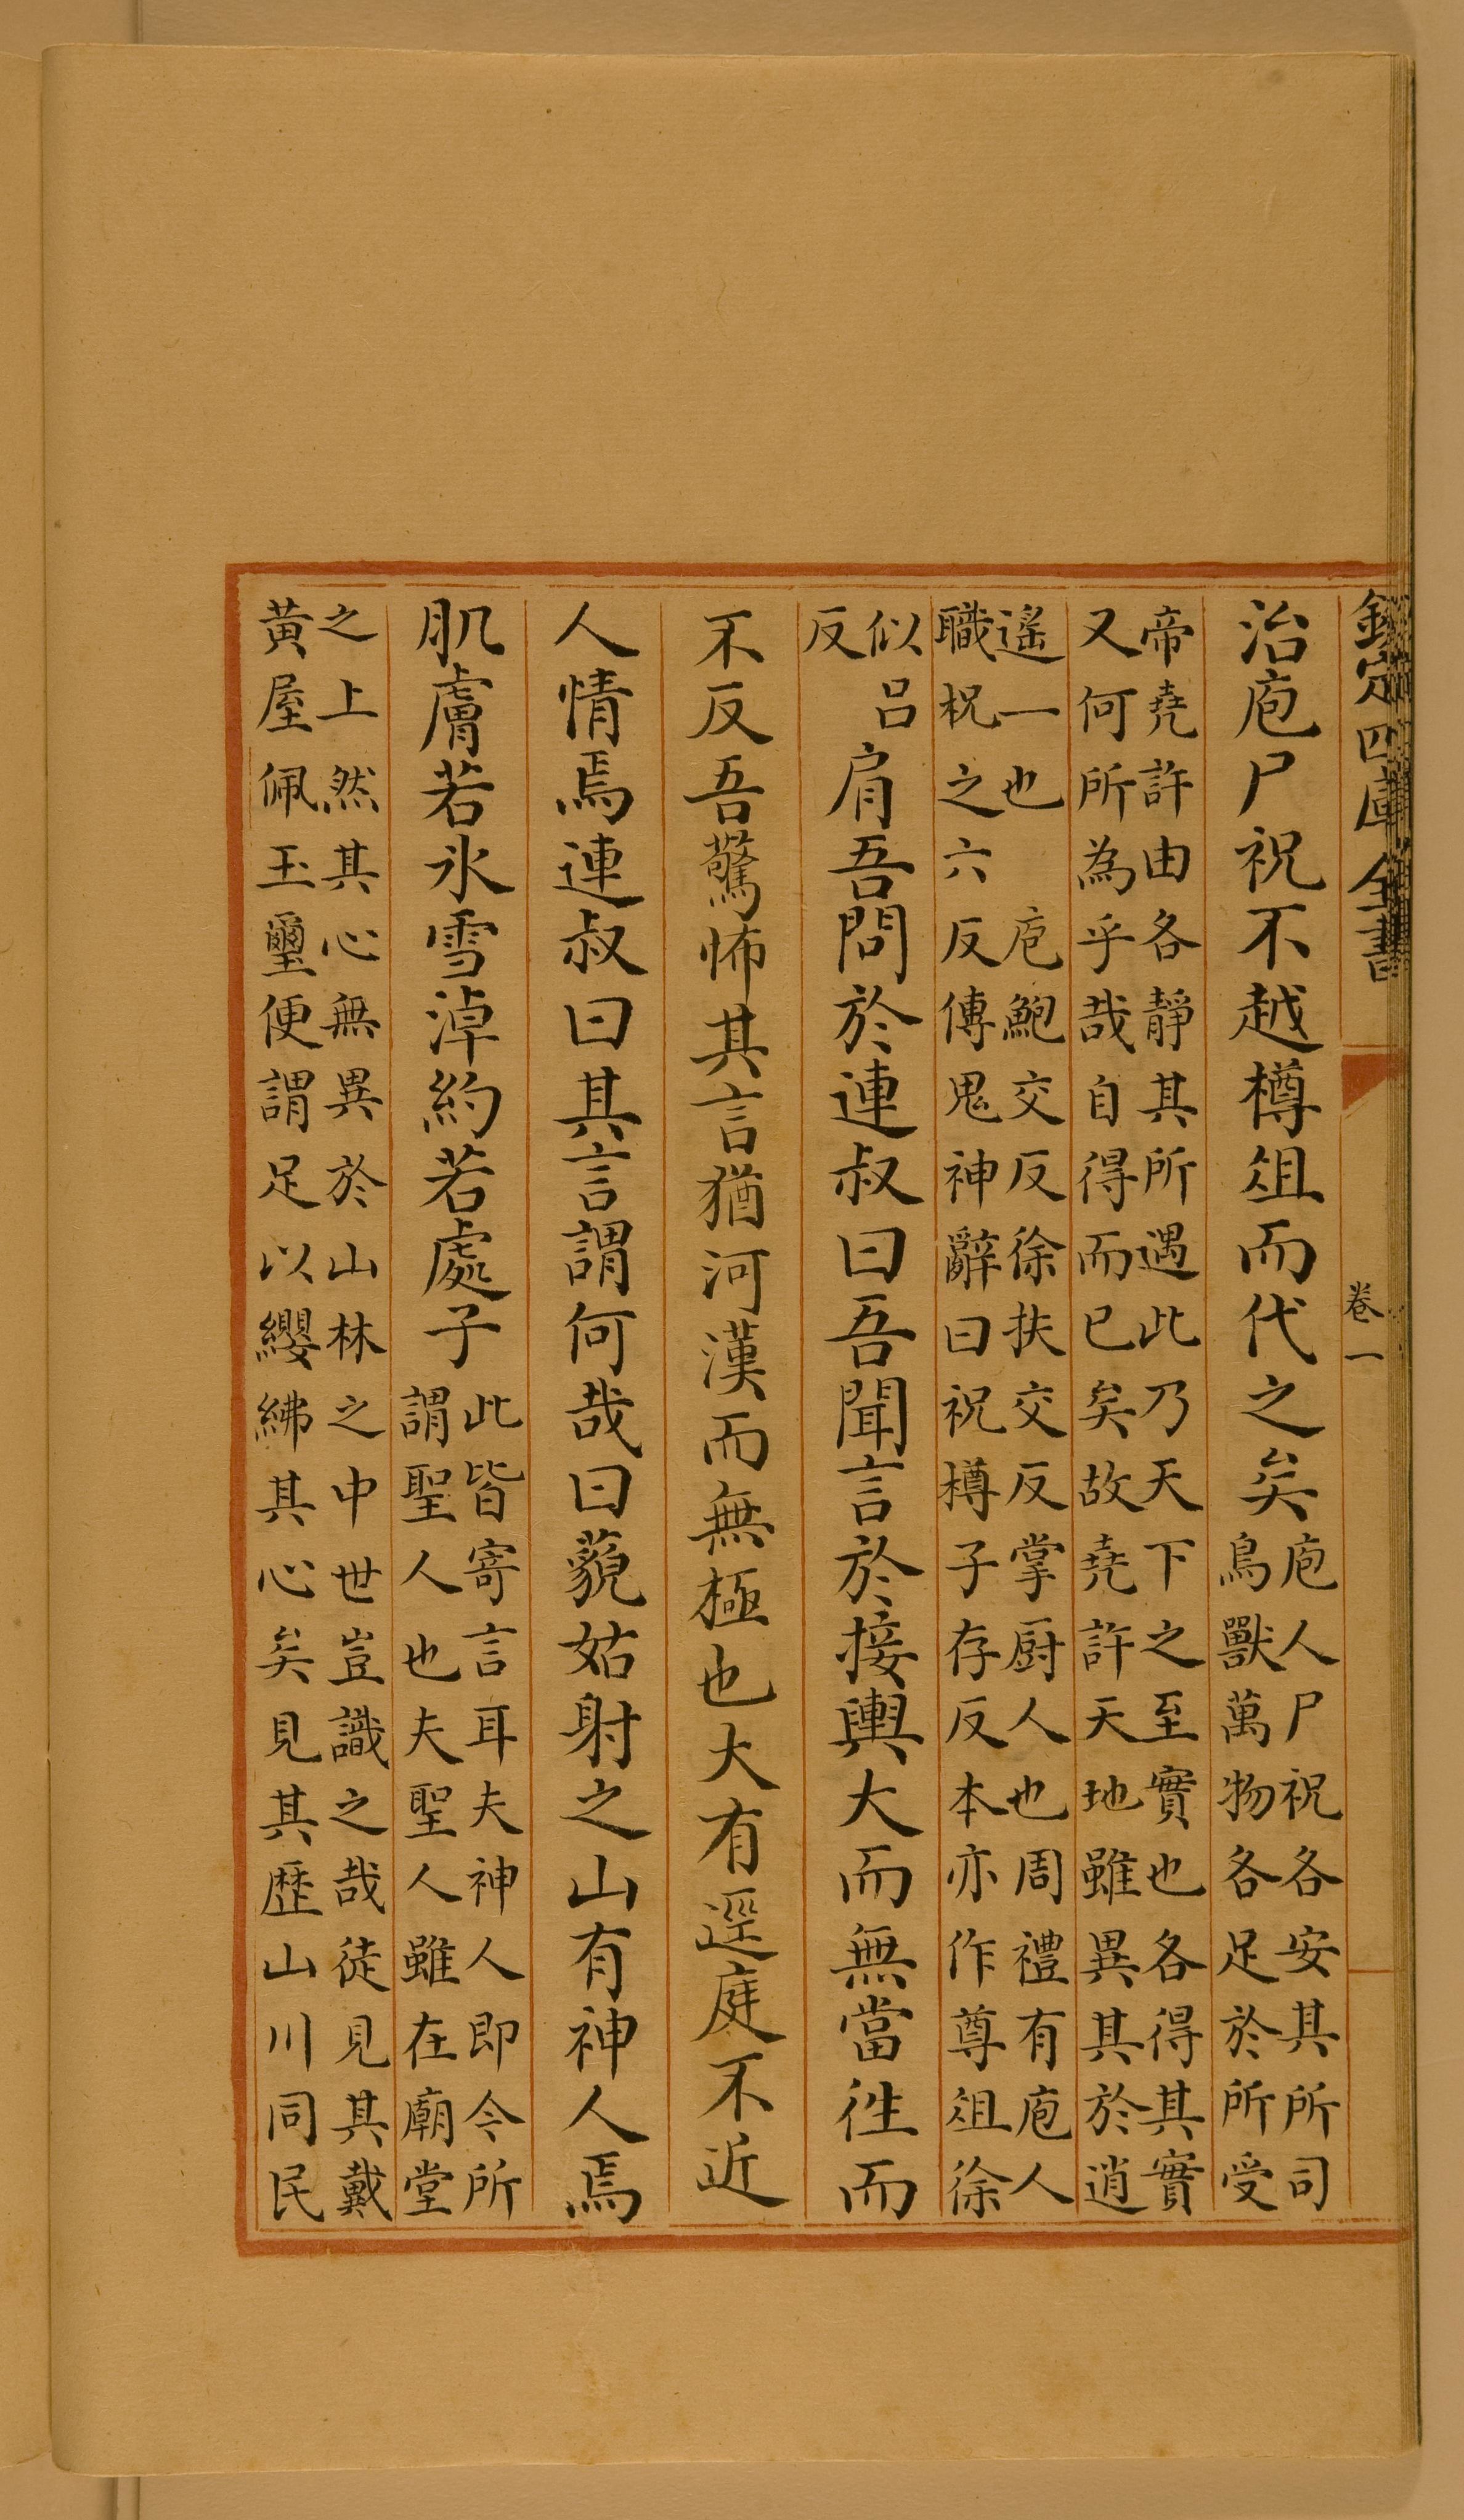 欽定四庫全書
卷一
治庖尸祝不越樽俎而代之矣
庖人尸祝各安其所司
鳥獸萬物各足於所受
帝堯許由各靜其所遇此乃天下之至實也各得其實
又何所為乎哉自得而已矣故堯許天地雖異其於逍
遙一也 庖鮑交反徐扶交反掌厨人也周禮有庖人
職祝之六反傳鬼神辭曰祝樽子存反本亦作尊俎徐
似呂
反
肩吾問於連叔曰吾聞言於接輿大而無當往而
不反吾驚怖其言猶河漢而無極也大有逕庭不近
人情焉連叔曰其言謂何哉曰藐姑射之山有神人焉
肌膚若氷雪淖約若處子
此皆寄言耳夫神人即今所
謂聖人也夫聖人雖在廟堂
之上然其心無異於山林之中世豈識之哉徒見其戴
黃屋佩玉璽便謂足以纓紼其心矣見其歷山川同民